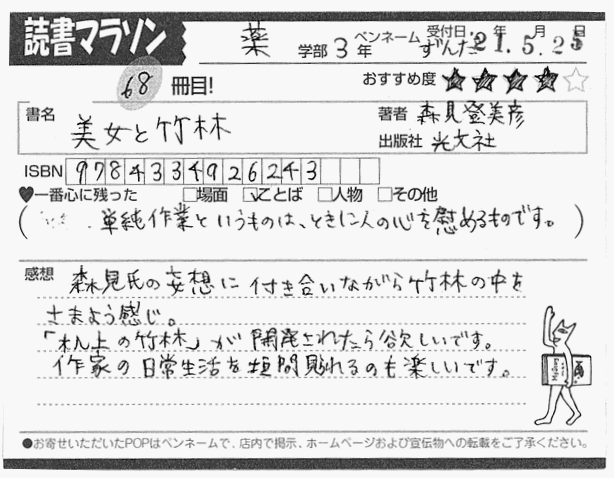 読書マラソン
薬 学部 3 年 ペンネーム ずんだ 受付日 21年 5月 25日
68 冊目! おすすめ度 ★★★★☆
書名 美女と竹林
著者 森見登美彦
出版社 光文社
ISBN 9784334926243
♥一番心に残った □場面 ☑ことば □人物 □その他
( 単純作業というものは、ときに人の心を慰めるものです。 )
感想 森見氏の妄想に付き合いながら竹林の中を
さまよう感じ。
「机上の竹林」が開発されたら欲しいです。
作家の日常生活を垣間見れるのも楽しいです。
●お寄せいただいたPOPはペンネームで、店内で掲示、ホームページおよび宣伝物への転載をご了承ください。